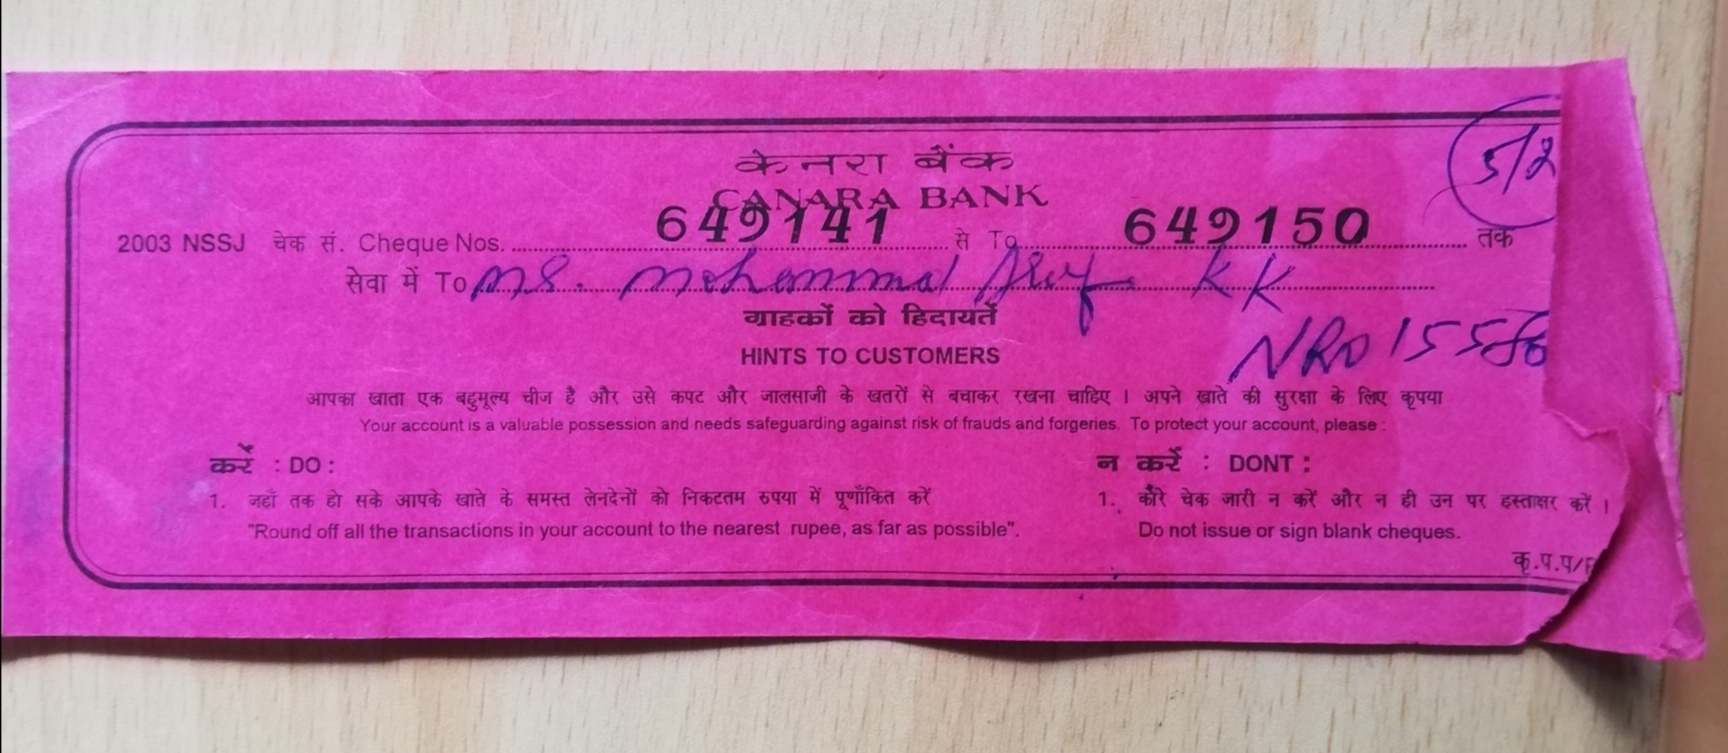 5/2
केनरा बैंक
CANARA BANK
2003 NSSJ चेक सं. Cheque Nos. 649141 से To 649150 तक
सेवा में To MS. Mohammad KK
ग्राहकों को हिदायतें
NRO 15586
HINTS TO CUSTOMERS
आपका खाता एक बहुमूल्य चीज है और उसे कपट और जालसाजी के खतरों से बचाकर रखना चाहिए । अपने खाते की सुरक्षा के लिए कृपया
Your account is a valuable possession and needs safeguarding against risk of frauds and forgeries. To protect your account, please :
करें : DO :
1. जहाँ तक हो सके आपके खाते के समस्त लेनदेनों को निकटतम रुपया में पूर्णांकित करें
"Round off all the transactions in your account to the nearest rupee, as far as possible".
न करें : DONT :
1. कोरे चेक जारी न करें और न ही उन पर हस्ताक्षर करें ।
Do not issue or sign blank cheques.
कृ.प.प/